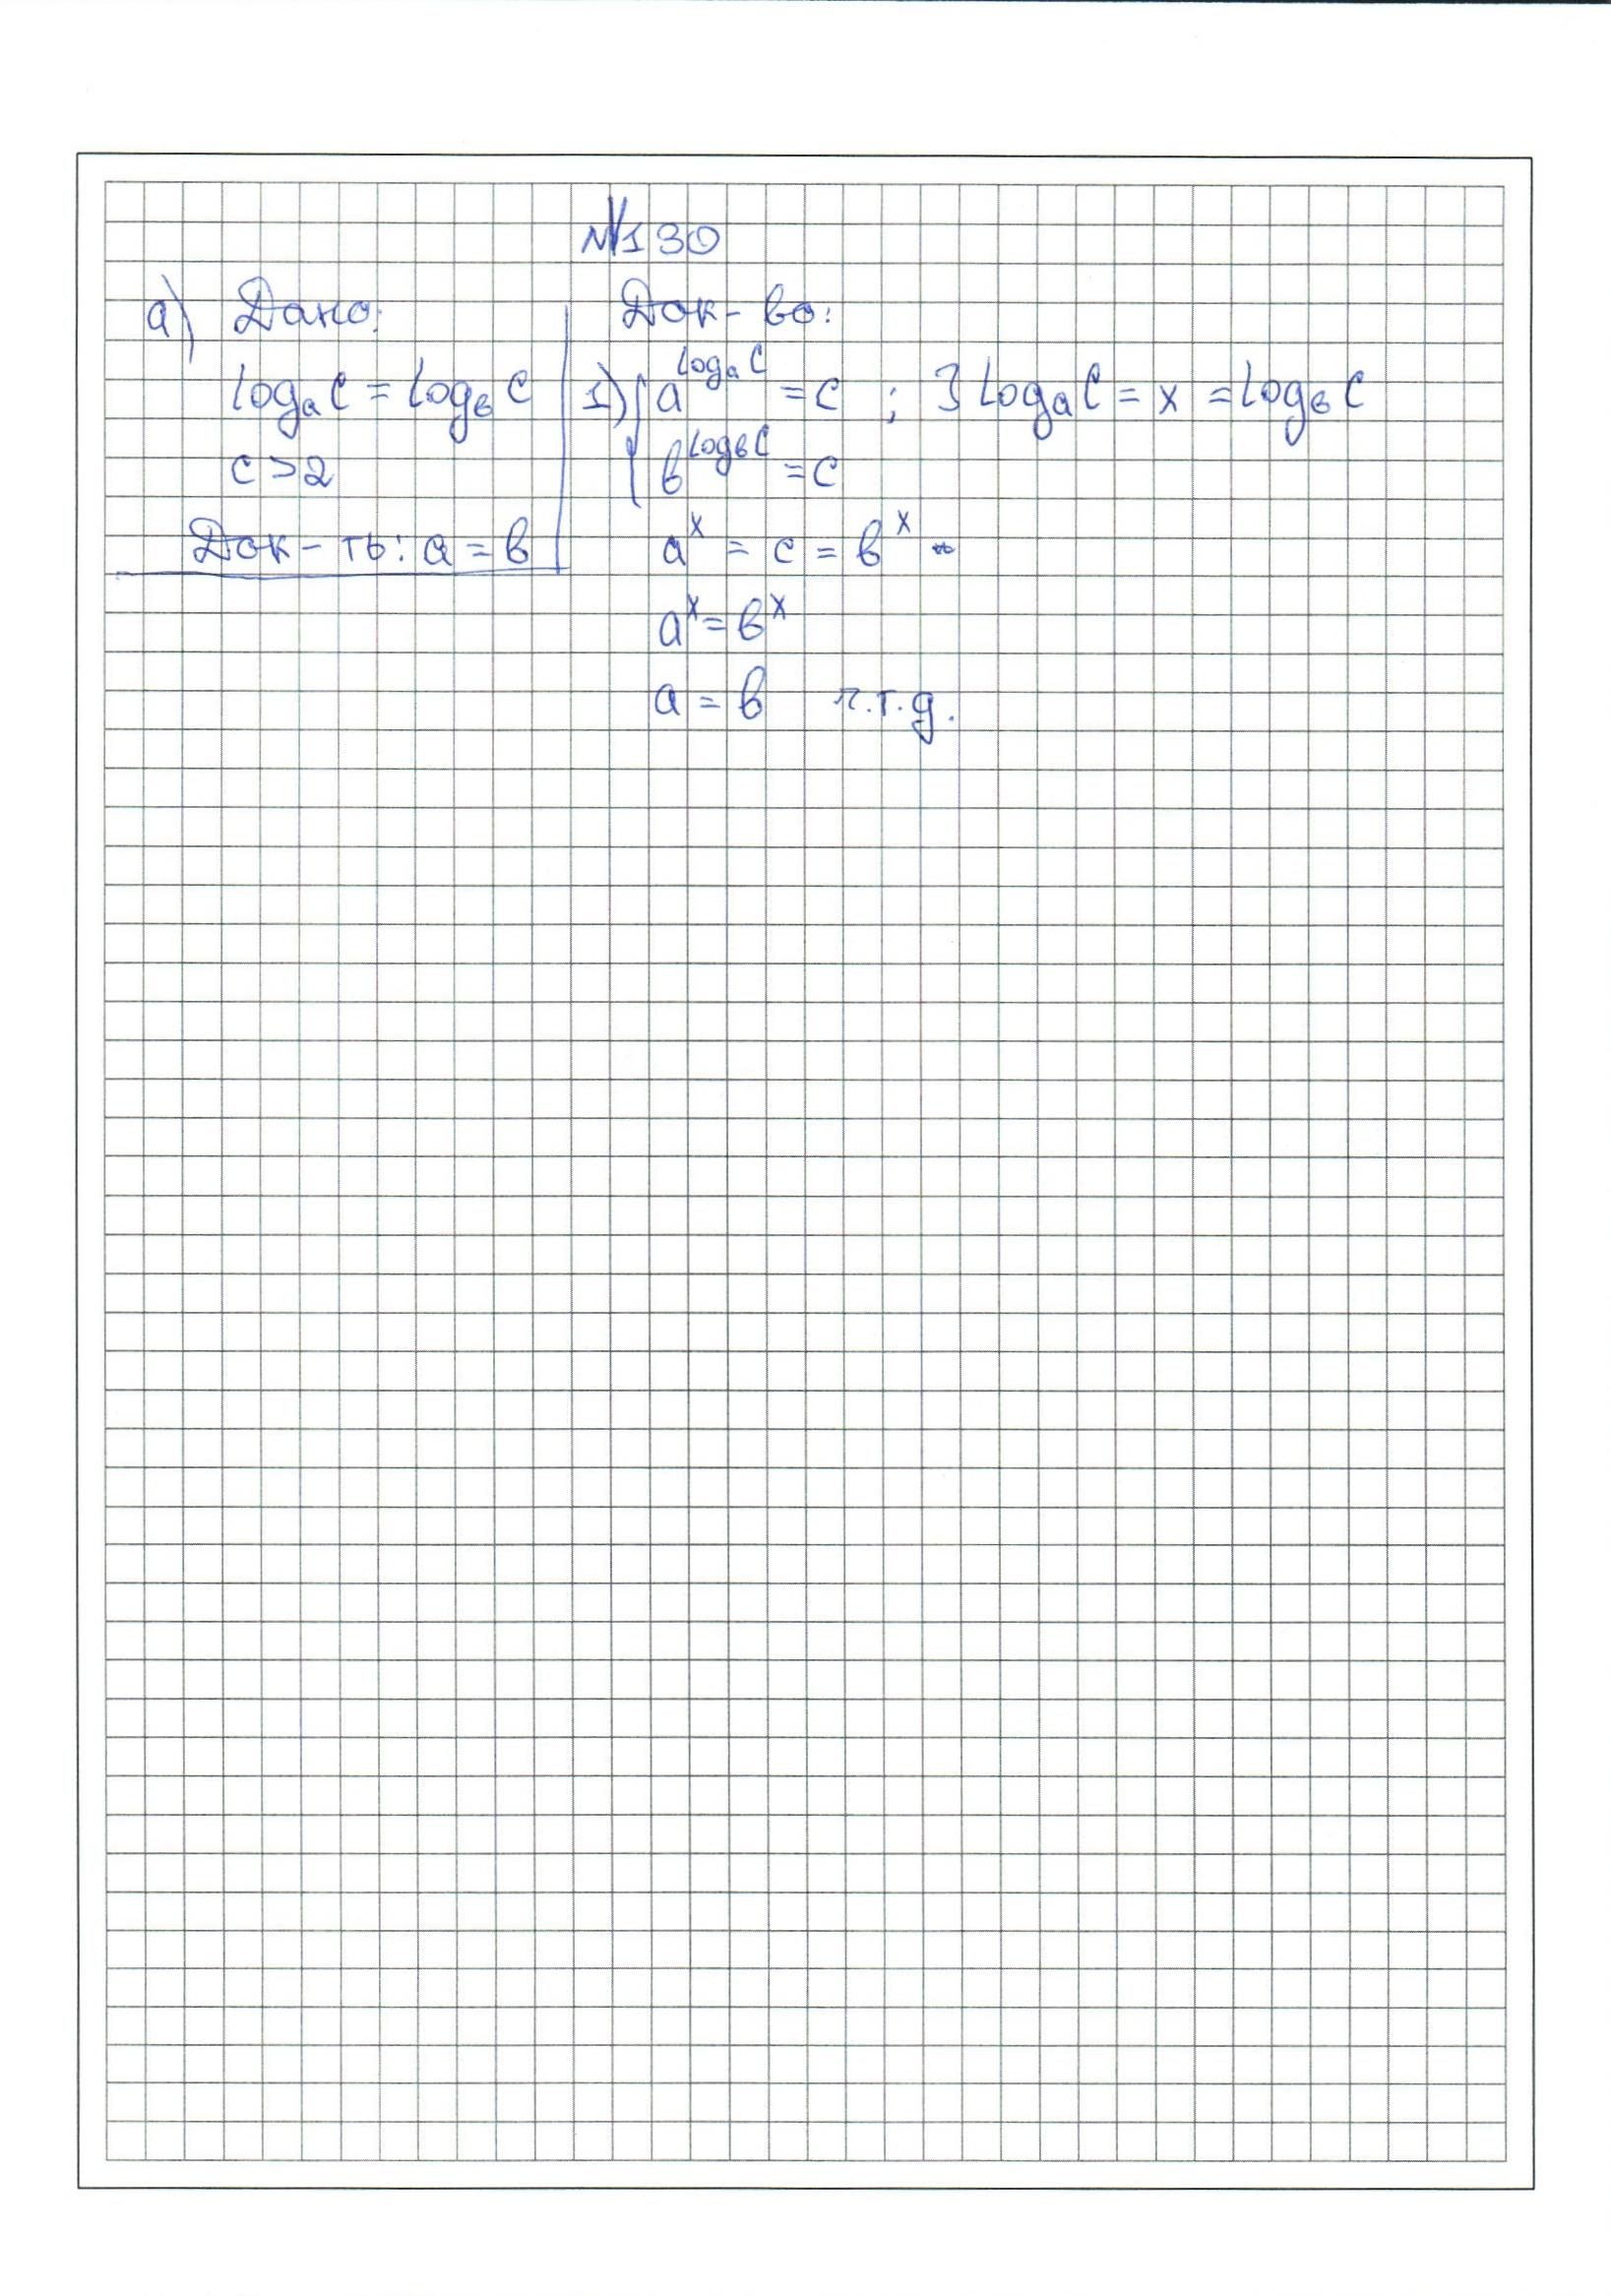 №130
а) Дано:
logₐC = logвC
c > 2
Док-ть: a = в
Док-во:
1) { a^(logₐC) = c ; ] logₐC = x = logвC
в^(logвC) = c
a^x = c = в^x
a^x = в^x
a = в ч.т.д.